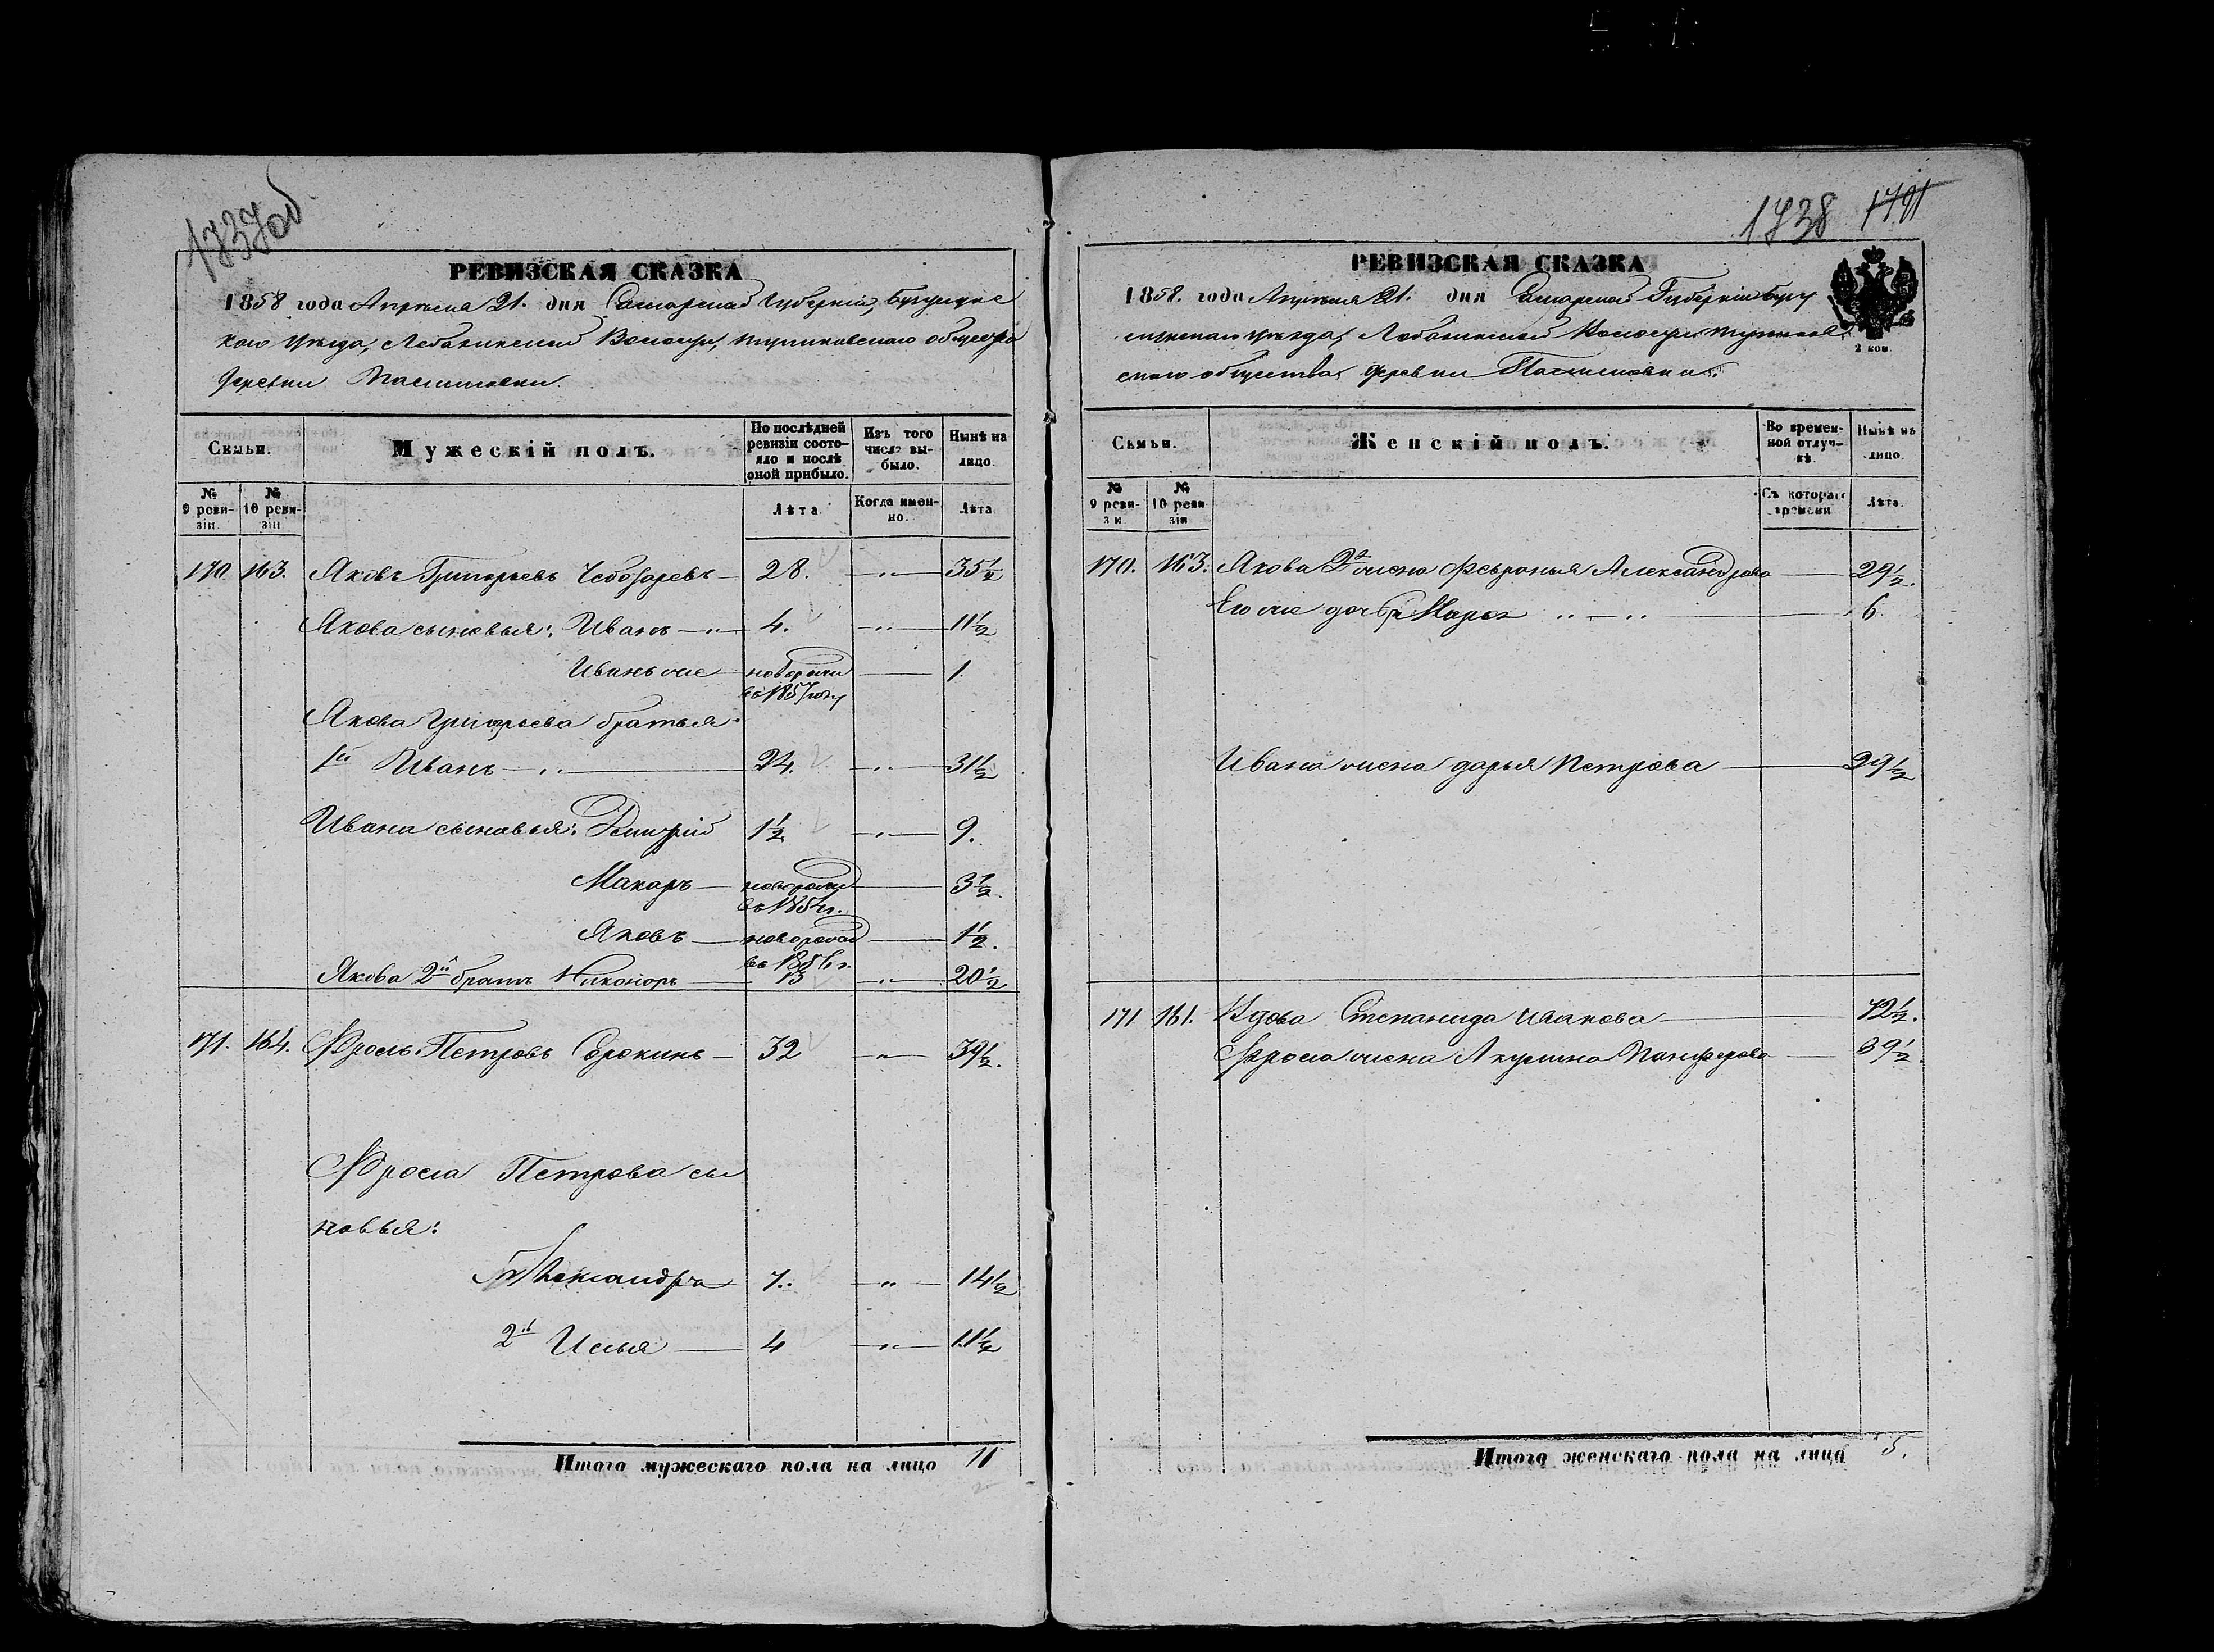 1737об
РЕВИЗСКАЯ СКАЗКА
1858 года Апрѣля 21. дня Самарской Губерніи, Бузулукс
каго уѣзда, Волости, общества
деревни
Семьи.
Мужескій полъ.
По послѣдней ревизіи состояло и послѣ оной прибыло.
Изъ того числа выбыло.
Нынѣ на лицо.
№ 9 ревизіи.
№ 10 ревизіи
Лѣта
Когда именно.
Лѣта
170. 163. Яковъ Григорьевъ Чебоѯаревъ 28. 35½
Якова сыновья: Иванъ 4. 11½
Иванъ же новорожд 1.
въ 1857 году
Якова Григорьева братья
1й Иванъ 24. 31½
Ивана сыновья: Дмитрій 1½ 9.
Макаръ новорожд 3½.
въ 1854 г.
Яковъ новорожд 1½.
въ 1856 г.
Якова 2й братъ Никоноръ 13 20½
171. 164. Фролъ Петровъ Сорокинъ 32 39½.
Фрола Петрова сы
новья:
Александръ 7. 14½
2й Илья 4 11½
Итого мужескаго пола на лицо 11
1738 1791
РЕВИЗСКАЯ СКАЗКА
1858. года Апрѣля 21. дня Самарской Губерніи Бузу
лукскаго уѣзда, Волости
скаго общества, деревни
2 коп.
Семьи.
Женскій полъ.
Во временной отлучкѣ.
Нынѣ на лицо
№ 9 ревизіи
№ 10 ревизіи
Съ котораго времени
Лѣта.
170. 163. Якова 2я жена Февронья Александрова 29½.
Его же дочь Марья 6.
Ивана жена Дарья Петрова 29½
171 161. Вдова Степанида Исакова 72½.
Фрола жена Акулина Панферова 39½.
Итого женскаго пола на лицо 5.